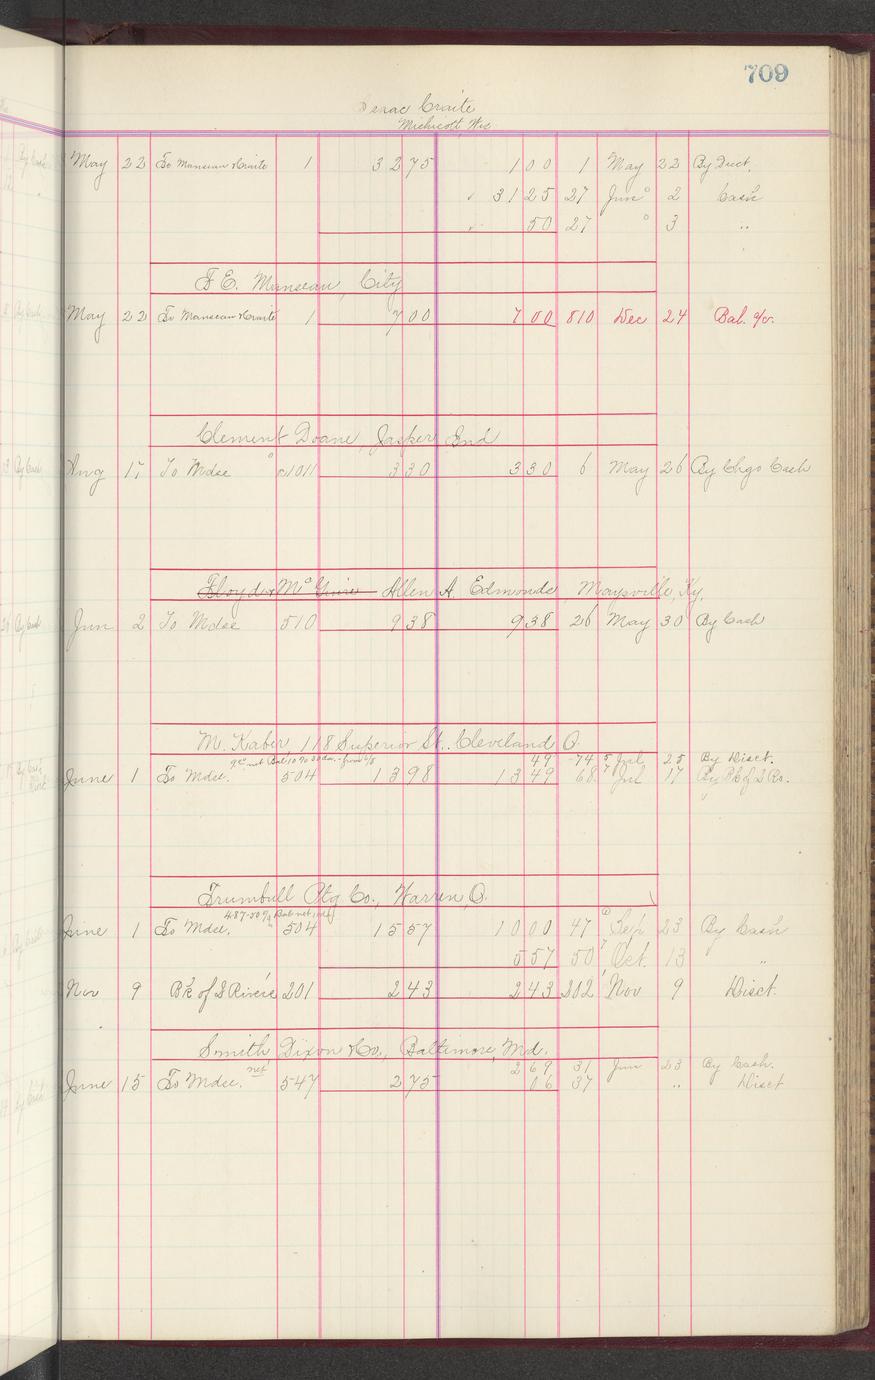 709
Isaac Craite
Mishicott, Wis
May 22 To Manseau & Craite 1 3275 100 1 May 22 By Duct.
3125 27 Jun 2 Cash
50 27 " 3 "
F. E. Manseau, City
May 22 To Manseau & Craite 1 700 700 810 Dec 24 Bal. a/c.
Clement Doane, Jasper, Ind
Aug 17 To Mdse c1011 330 330 6 May 26 By Chgo Cash
Floyd & McGuire Allen A. Edmonds, Maysville, Ky.
Jun 2 To Mdse 510 938 938 26 May 30 By Cash
M. Kaber, 118 Superior St. Cleveland O.
49 74 Jul 25 By Disct.
June 1 To Mdse. 504 1398 1349 68 Jul 17 By Bk of 2 Rs.
Trumbull Ptg Co., Warren, O.
June 1 To Mdse. 504 1557 1000 47 Sep 23 By Cash
557 50 Oct. 13 "
Nov 9 Bk of 2 Rivers 201 243 243 202 Nov 9 Disct.
Smith, Dixon & Co., Baltimore, Md.
269 31 Jun 23 By Cash.
June 15 To Mdse. net 547 275 06 37 " Disct